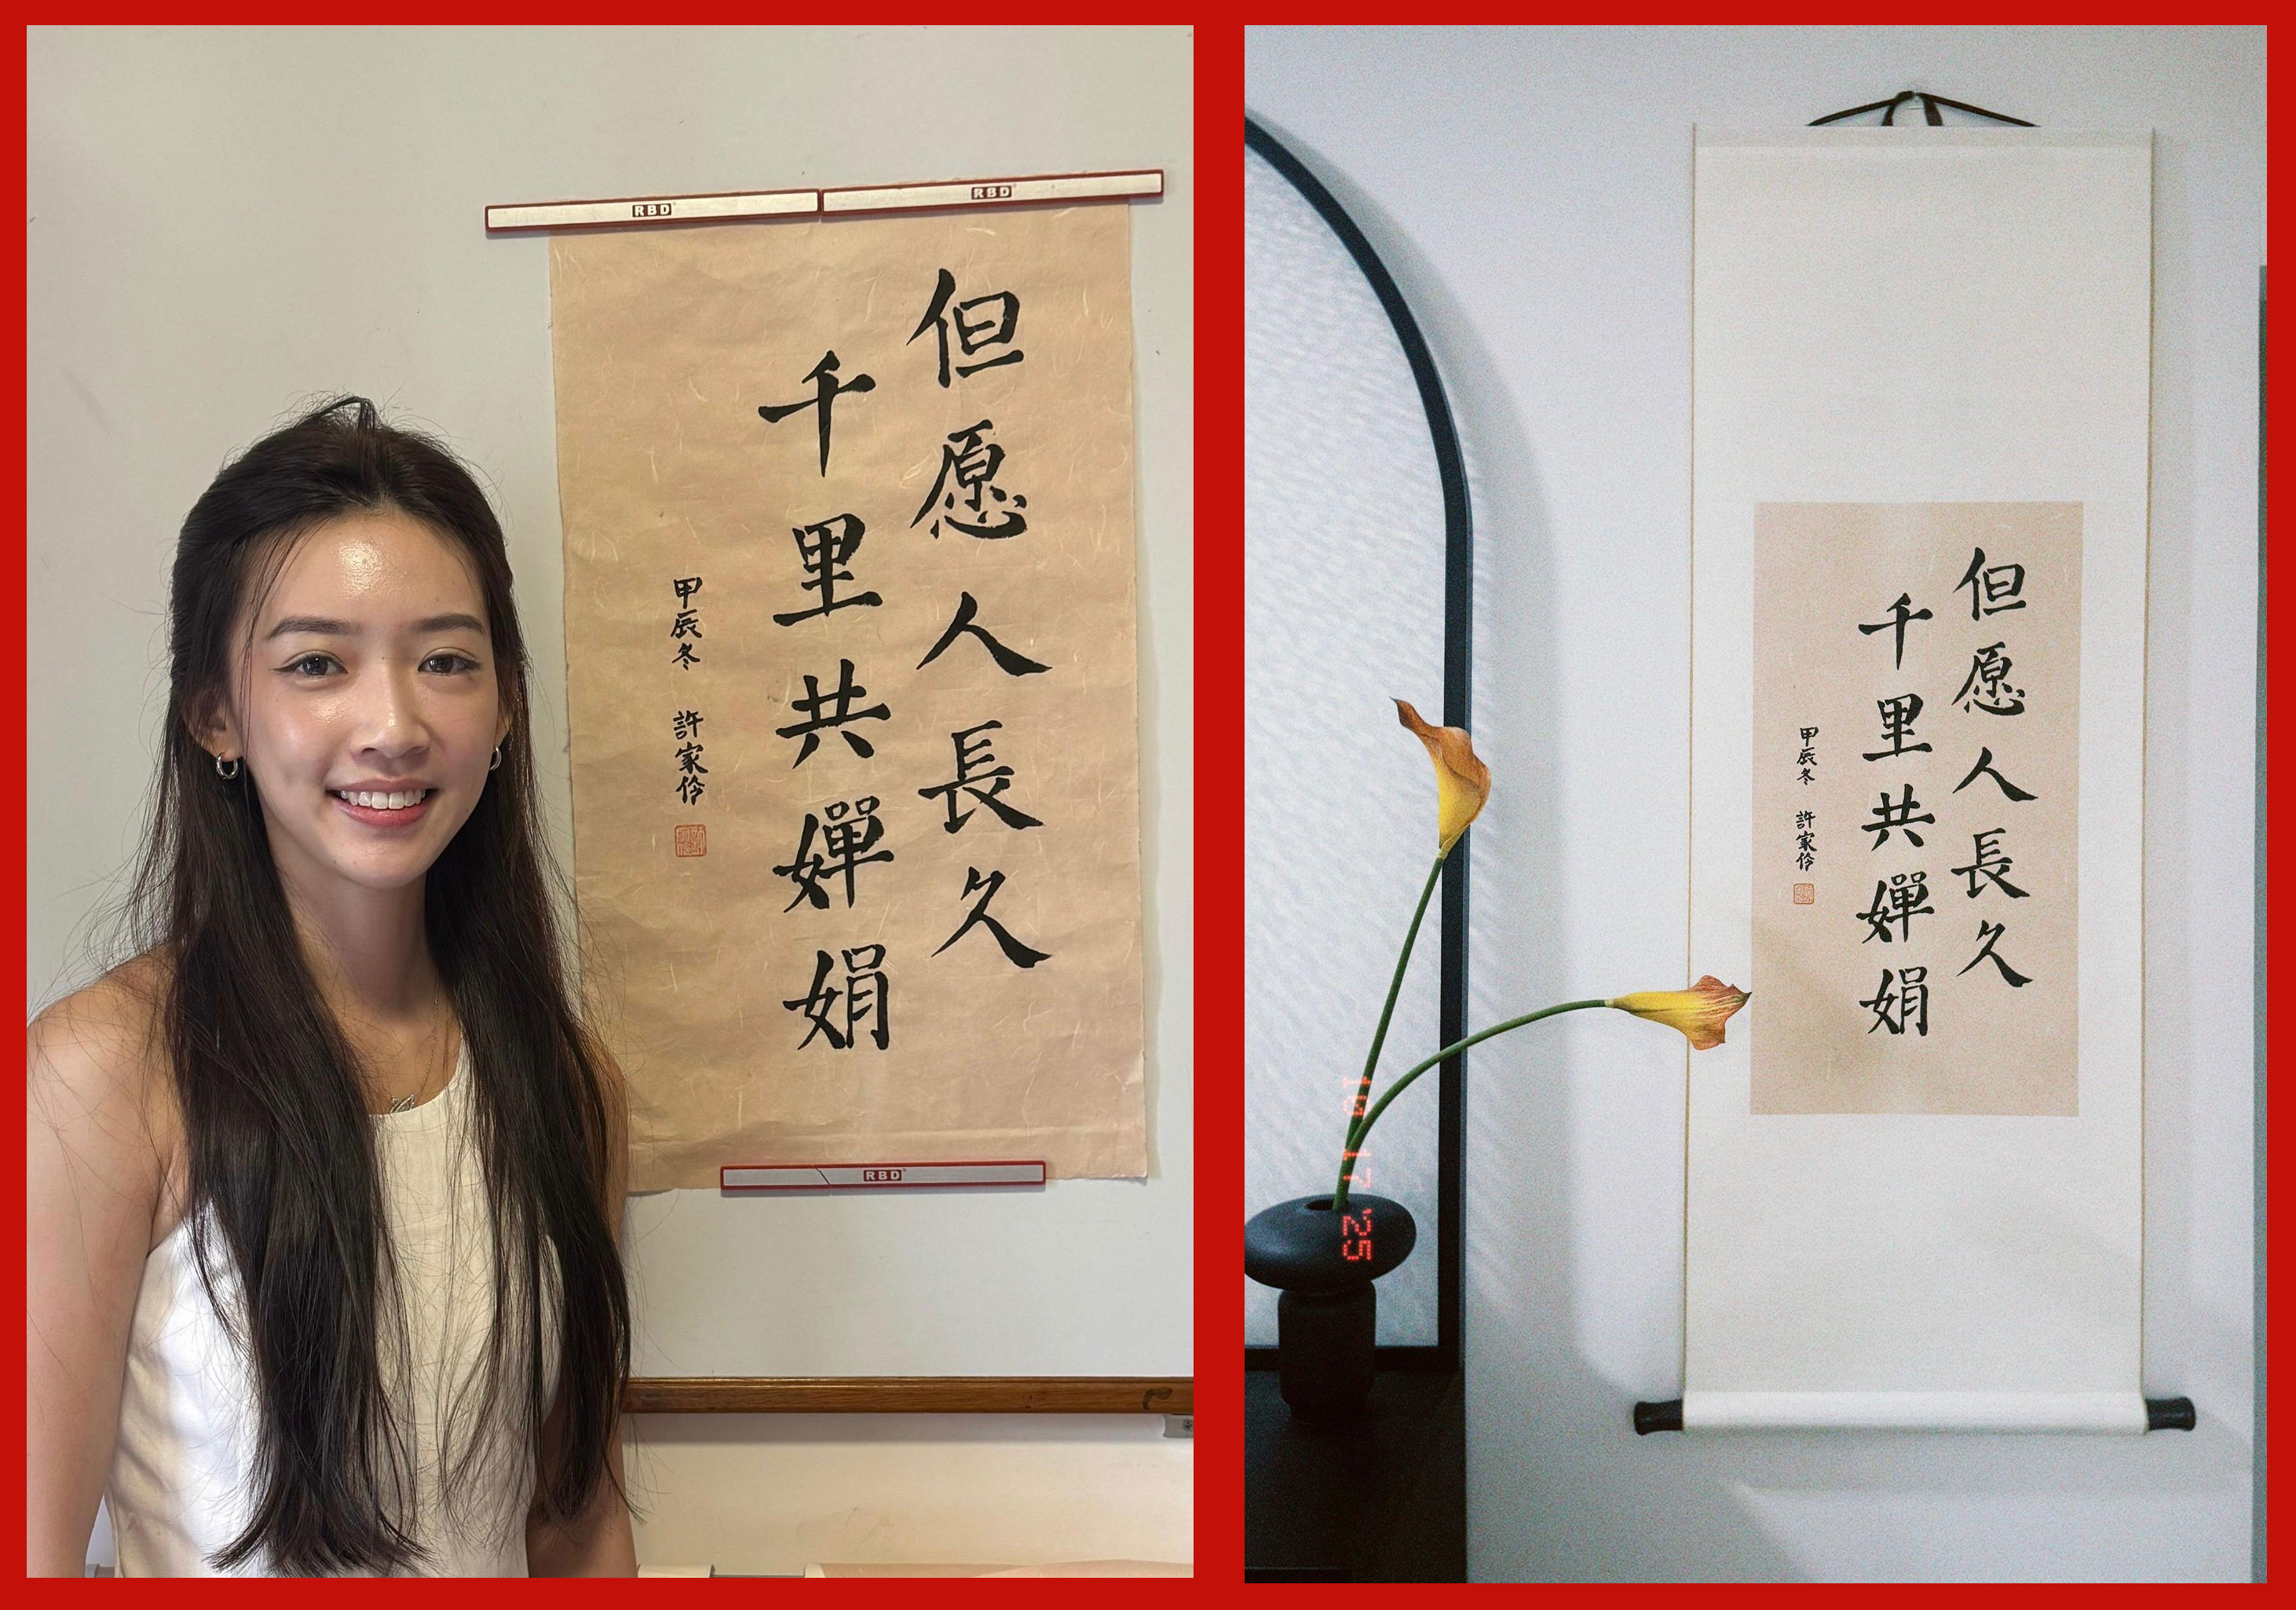 RBD
RBD
但愿人長久
千里共嬋娟
甲辰冬 許家伶
RBD
但愿人長久
千里共嬋娟
甲辰冬 許家伶
10 17 '25